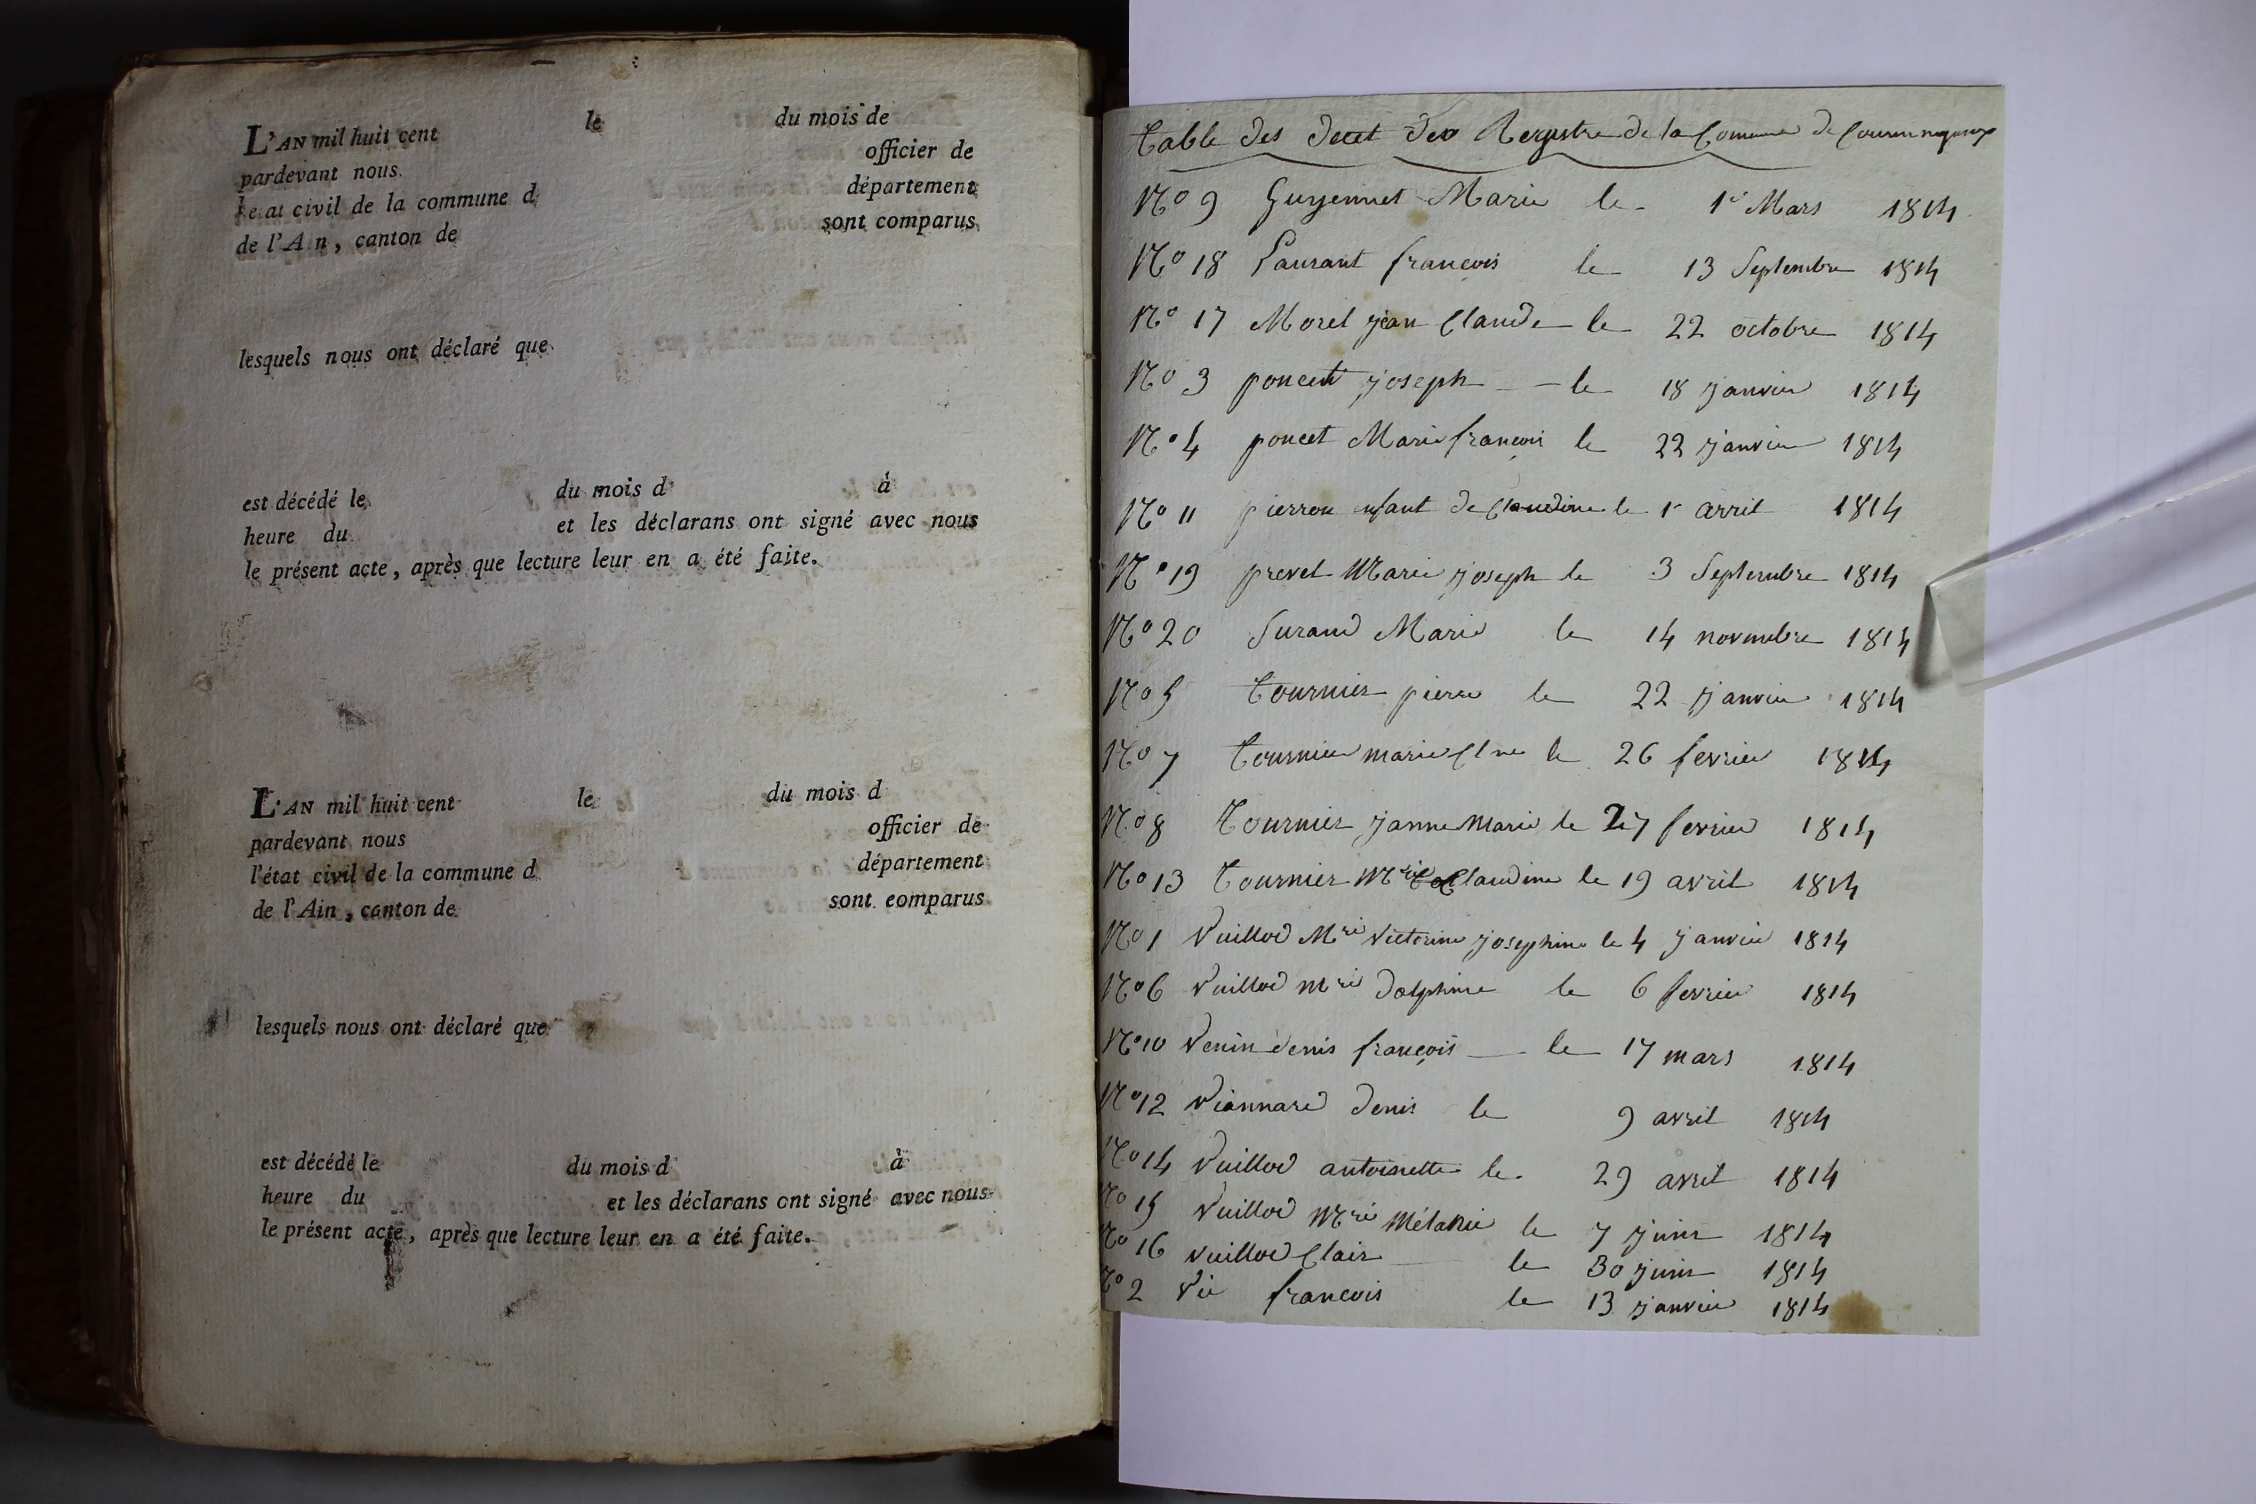 L'AN mil huit cent le du mois de
pardevant nous officier de
l'etat civil de la commune d département
de l'Ain, canton de sont comparus
lesquels nous ont déclaré que
est décédé le du mois d à
heure du et les déclarans ont signé avec nous
le présent acte, après que lecture leur en a été faite.
L'AN mil huit cent le du mois d
pardevant nous officier de
l'état civil de la commune d département
de l'Ain, canton de sont comparus
lesquels nous ont déclaré que
est décédé le du mois d à
heure du et les déclarans ont signé avec nous
le présent acte, après que lecture leur en a été faite.
table des Decet des Regustre de la Comune de
No 9 Guyennet Marie le 1er Mars 1814
No 18 Laurant francois le 13 Septembre 1814
No 17 Morel jean Claude le 22 octobre 1814
No 3 poncet joseph le 18 janvier 1814
No 4 poncet Marie françois le 22 janvier 1814
No 11 pierron enfant de Claudine le 1r avril 1814
No 19 prevet Marie joseph le 3 Septembre 1814
No 20 Suraud Marie le 14 novembre 1814
No 5 tournier pierre le 22 janvier 1814
No 7 tournier marie Clne le 26 fevrier 1814
No 8 tournier janne Marie le 27 fevrier 1814
No 13 tournier Mrie Claudine le 19 avril 1814
No 1 Vuillod Mrie Victorine josephine le 4 janvier 1814
No 6 Vuillod Mrie Dælphine le 6 fevrier 1814
No 10 Venin denis françois le 17 mars 1814
No 12 Viannard Denis le 9 avril 1814
No 14 Vuillod antoinette le 29 avril 1814
No 15 Vuillod Mrie Mélanie le 7 juin 1814
No 16 Vuillod Clair le 30 juin 1814
No 2 Vié francois le 13 janvier 1814